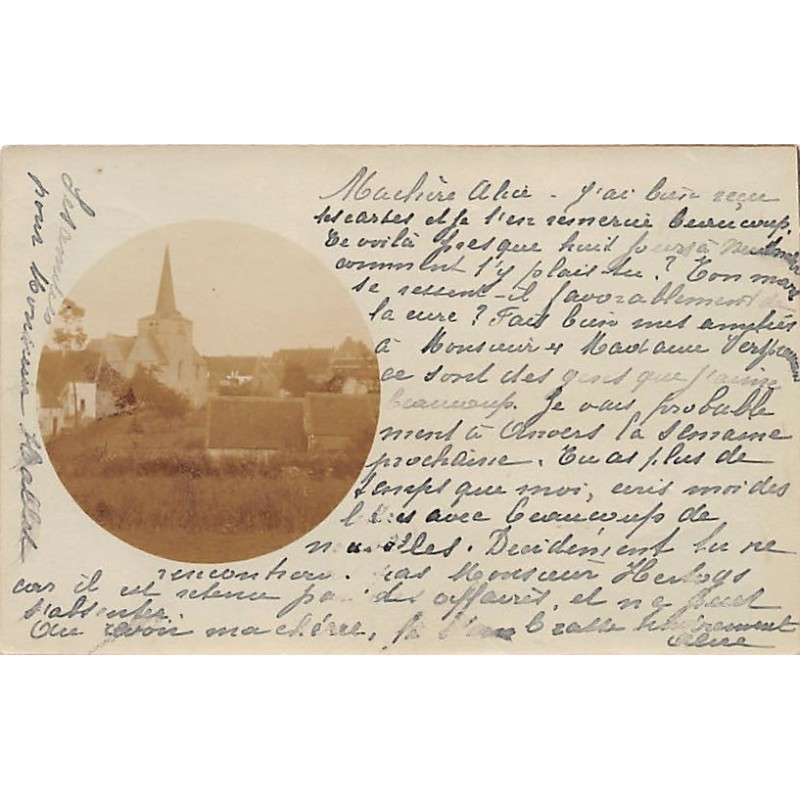 Ma chère Alice - J'ai bien reçu
les cartes et je t'en remercie beaucoup.
Te voilà presque huit jours à
comment t'y plais tu? Ton mari
se ressent-il favorablement de
la cure? Fais bien mes amitiés
à Monsieur et Madame
ce sont des gens que j'aime
beaucoup. Je vais probable
ment à Anvers la semaine
prochaine. Tu as plus de
temps que moi, écris moi des
avec beaucoup de
nouvelles. Decidément tu ne
rencontreras pas Monsieur Hertogs
car il est retenu par des affaires, et ne peut
s'absenter.
Au revoir ma chérie, je t'embrasse tendrement
Les amitiés
pour Monsieur